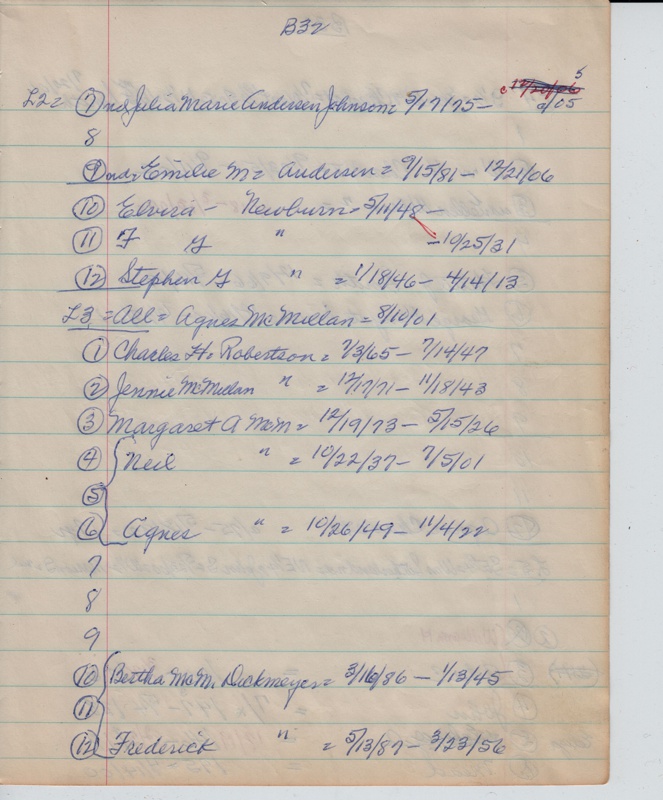 B32
L2= 7 nd Julia Marie Andersen Johnson = 5/17/75 - 5/05
8
9 nd = Emilie M = Andersen = 9/15/81 - 12/21/06
10 Elvira - Newburn - 5/11/48 -
11 F G " - 10/25/31
12 Stephen G " = 1/18/46 - 4/14/13
L3 = All = Agnes McMillan = 8/10/01
1 Charles H. Robertson = 7/3/65 - 7/14/47
2 Jennie McMillan " = 12/17/71 - 11/18/43
3 Margaret A McM = 12/19/73 - 5/15/26
4 Neil " = 10/22/37 - 7/5/01
5
6 Agnes " = 10/26/49 - 11/4/22
7
8
9
10 Bertha McM. Dickmeyer = 3/16/86 - 1/13/45
11
12 Frederick " = 5/13/87 - 3/23/56